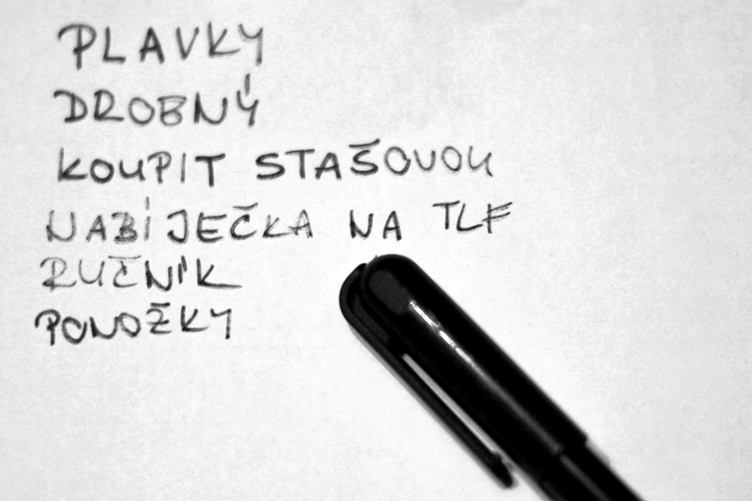 PLAVKY
DROBNÝ
KOUPIT STAŠOVOU
NABÍJEČKA NA TLF
RUČNÍK
PONOŽKY